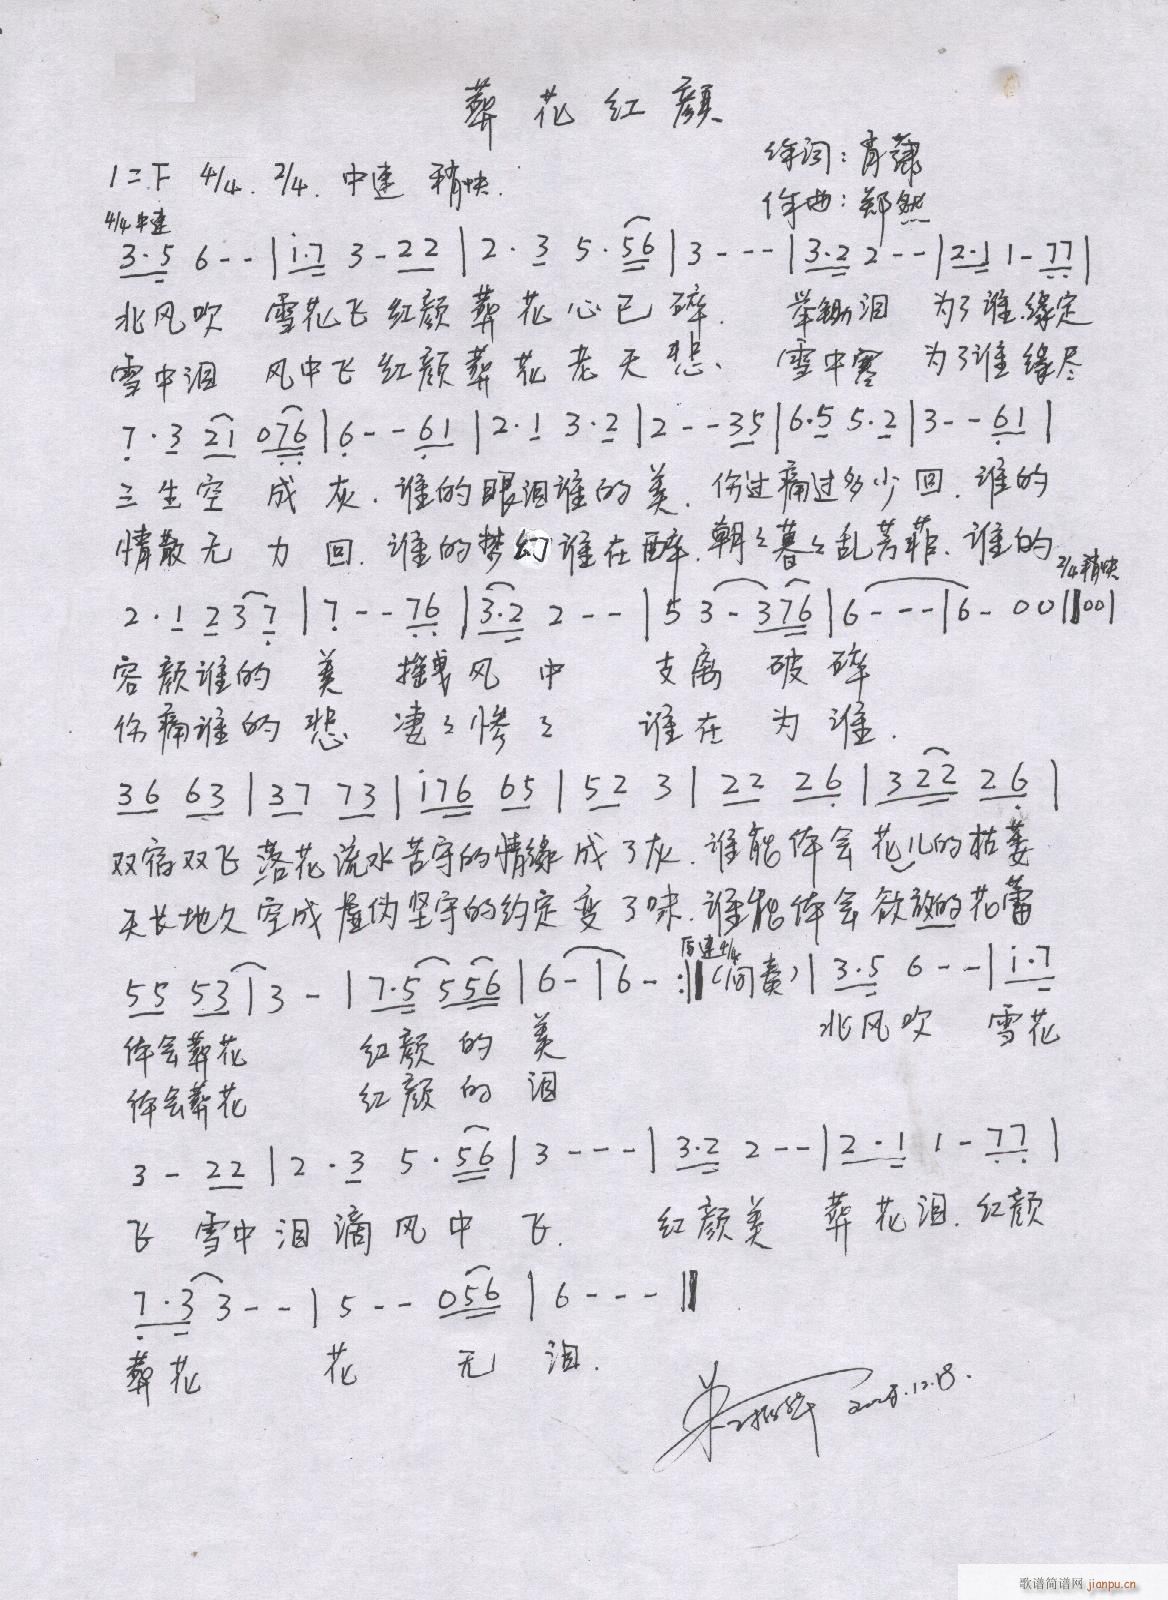 葬花红颜
1=F 4/4. 2/4. 中速 稍快.
作词:肖
作曲:郑然
4/4 中速
3·5 6--|i·7 3-22|2·3 5·56|3---|3·2 2--|2·1 1-77|
北风吹 雪花飞红颜葬花心已碎. 举锄泪 为了谁.缘定
雪中泪 风中飞红颜葬花老天悲、 雪中寒 为了谁缘尽
7·3 21 076|6--61|2·1 3·2|2--35|6·5 5·2|3--61|
三生空 成灰.谁的眼泪谁的美.伤过痛过多少回.谁的
情散无 力回.谁的梦幻谁在醉.朝々暮々乱芳菲.谁的
2/4 稍快
2·1 237|7--76|3·2 2--|5 3-376|6---|6-00||00|
容颜谁的 美 摇曳风中 支离破碎
伤痛谁的悲 凄々惨々 谁在为谁.
36 63|37 73|i76 65|52 3|22 26|322 26|
双宿双飞落花流水苦守的情缘成了灰.谁能体会花儿的枯萎
天长地久空成虚伪坚守的约定变了味.谁能体会欲放的花蕾
4/4
55 53|3-|7·5 556|6-|6-:||(间奏)|3·5 6--|i·7
体会葬花 红颜的美 北风吹 雪花
体会葬花 红颜的泪
3-22|2·3 5·56|3---|3·2 2--|2·1 1-77|
飞 雪中泪滴风中飞. 红颜美 葬花泪.红颜
7·3 3--|5--056|6---||
葬花 花 无 泪.
12.18.
歌谱简谱网 jianpu.cn